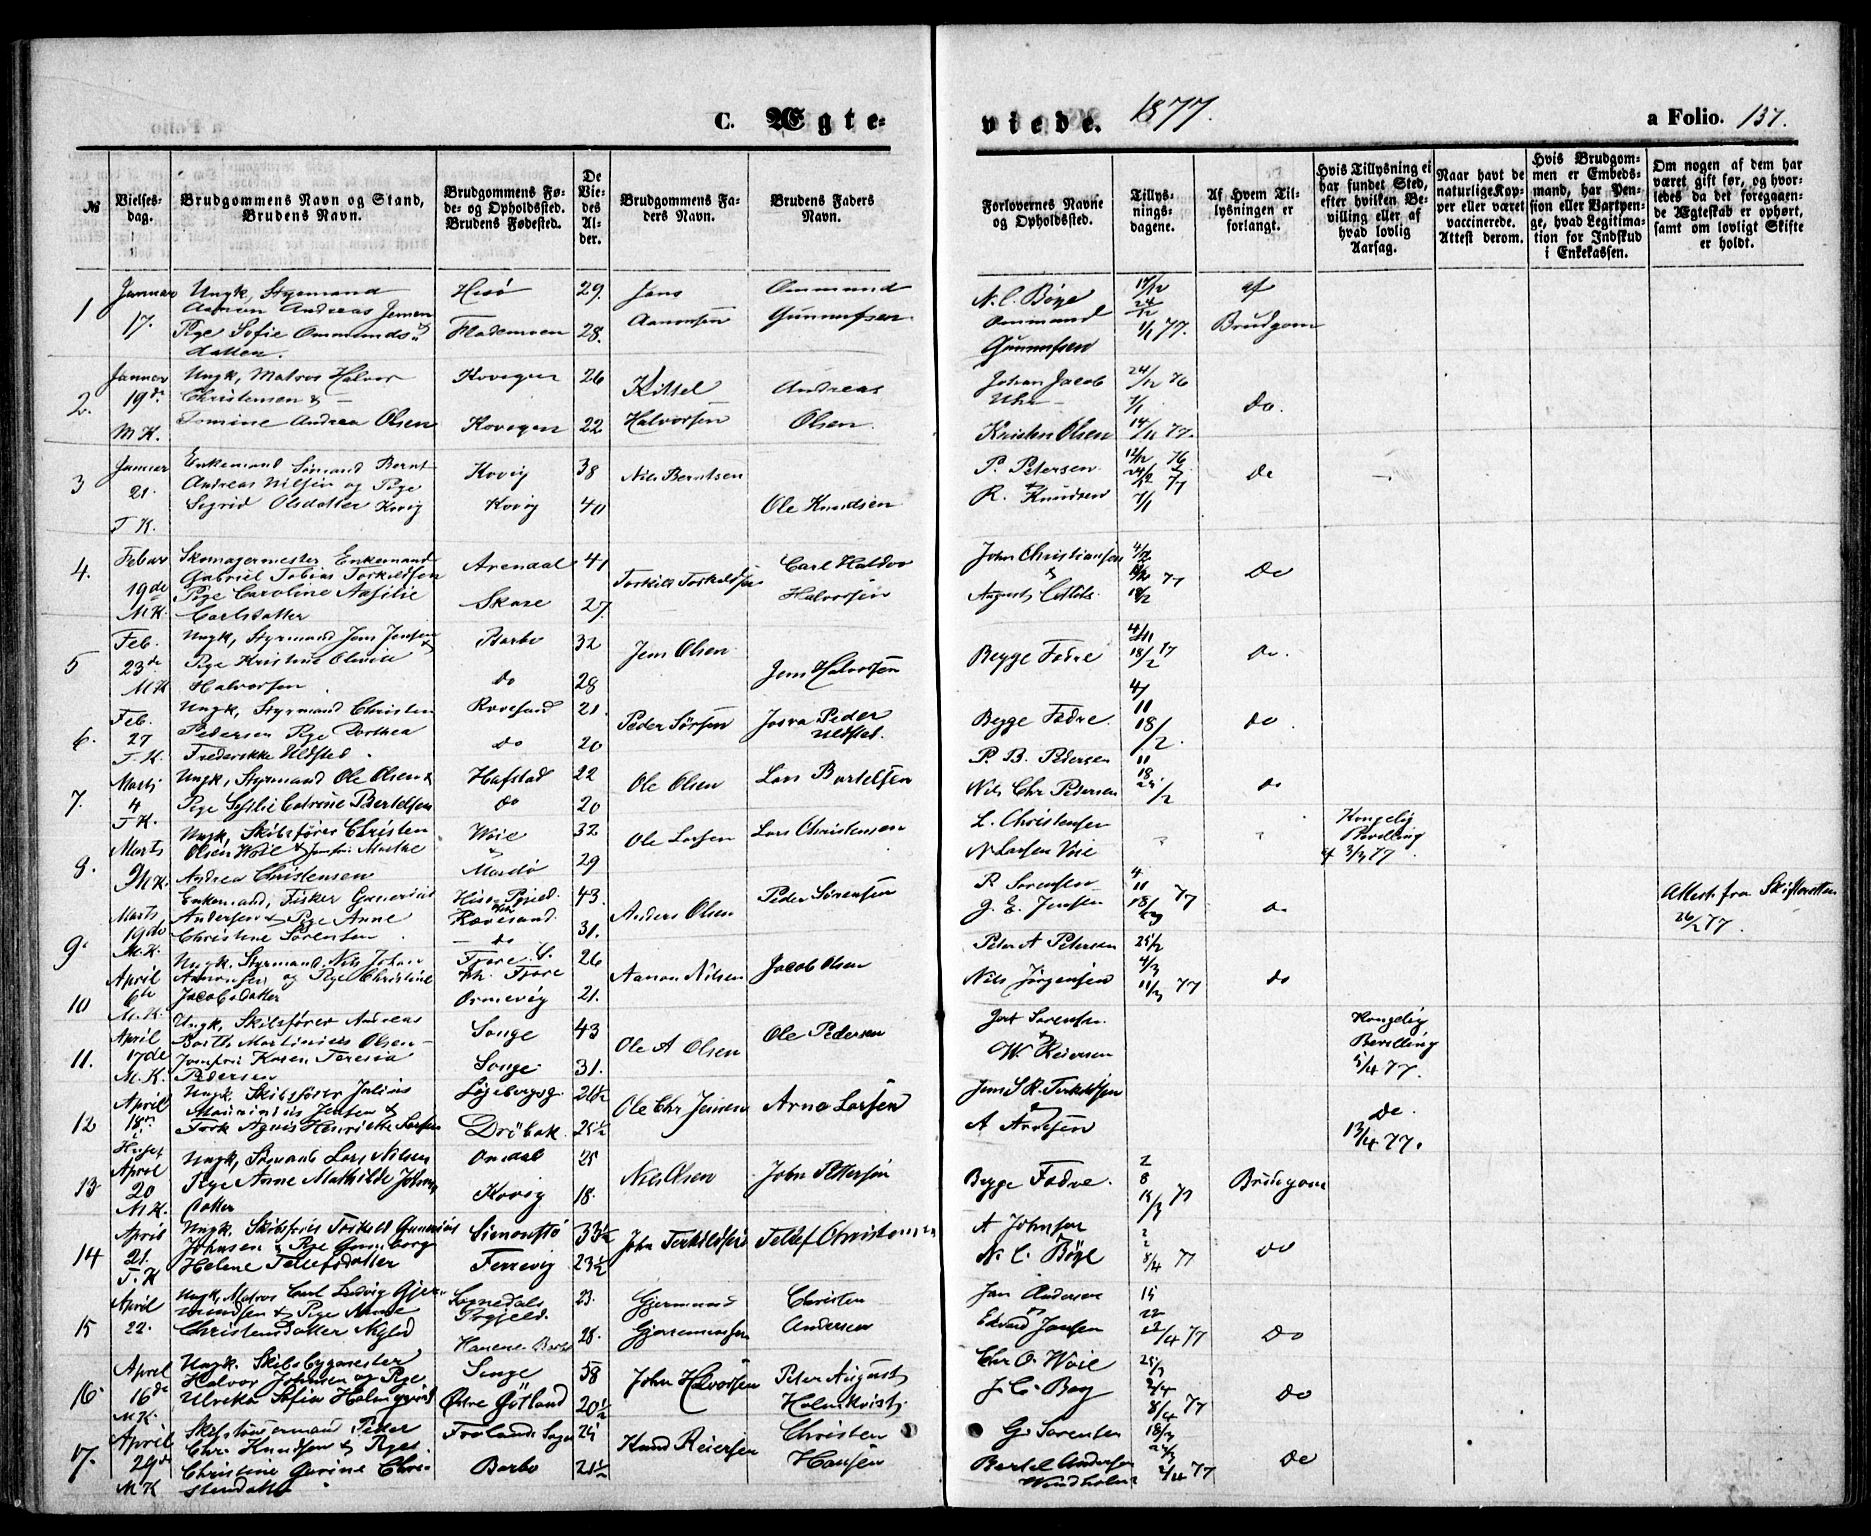 C. Ægte-
viede. 1877.
a Folio. 137.
№
Vielses-
dag.
Brudgommens Navn og Stand,
Brudens Navn.
Brudgommens Fø-
de- og Opholdssted.
Brudens Fødested.
De
Vie-
des
Al-
der.
Brudgommens Fa-
ders Navn.
Brudens Faders
Navn.
Forlovernes Navne
og Opholdssted.
Tillys-
nings-
dagene.
Af Hvem Til-
lysningen er
forlangt.
Hvis Tillysning ei
har fundet Sted,
efter hvilken Be-
villing eller af
hvad lovlig
Aarsag.
Naar havt de
naturlige Kop-
per eller været
vaccinerede.
Attest derom.
Hvis Brudgom-
men er Embeds-
mand, har Pen-
sion eller Vartpen-
ge, hvad Legitima-
tion for Indskud
i Enkekassen.
Om nogen af dem har
været gift før, og hvor-
ledes da det foregaaen-
de Ægteskab er ophørt,
samt om lovligt Skifte
er holdt.
1 Januar 17.
Ungk, Styrmand
Aanon Andreas Jensen &
Pige Sofie Ommunds-
datter.
Hisø 29.
Flademoen 28.
Jens
Aanonsen
Ommund
Gunnufsen
N. C. Bøye
Ommund
Gunnufsen
17/12
24/12
1/1 77.
af
Brudgom
2. Januar 19de M K.
Ungk, Matros Halvor
Christensen &
Tomine Andrea Olsen
Kovegen 26
Kovegen 22
Kittel
Halvorsen
Andreas
Olsen
Johan Jacob
Kristen Olsen
24/12 76
1/1
14/11 77.
do.
3 Januar 21. T K.
Enkemand Sømand Bernt
Andreas Nilsen og Pige
Sigrid Olsdatter Kovig
Kovig 38
Kovig 40
Nils Berntsen
Ole Knudsen
P. Petersen
R. Knudsen
24/12
7/1
do
4. Febuar 19de M K.
Skomagermester Enkemand
Gabriel Tobias Torkildsen
Pige Caroline Amilie
Carlsdatter
Arendal 41
Skare 27.
Torkild Torkildsen
Carl Haldvo
Halvorsen
John Christiansen
&
August
18/2 77
Do
5 Feb. 23de M K
Ungk, Styrmand Jens Jensen &
Pige Kristine Olivie
Halvorsen
Barbo 32
do 28
Jens Olsen
Jens Halvorsen
Begge Fædre
4/11
18/2 77
do.
6. Feb. 27 T. K.
Ungk, Styrmand Christen
Pedersen Pige Dorthea
Frederikke Uldsted.
Revesand 21.
do 20
Peder Sørsen
Josva Peder
Uldsted.
Begge Fædre.
4/
11
18/2.
do
7. Marts 4 T K.
Ungk, Styrmand Ole Olsen &
Pige Sofie Catrine Bertelsen
Hafstad 22
do 20
Ole Olsen
Lars Bertelsen
P. B. Pedersen
Nils Chr Pedersen
11
18
25/2
do
8. Marts 9 M K.
Ungk, Skibsfører Christen
Olsen Woie & Jomfru Marthe
Andrea Christensen
Woie 32
Mærdø 29
Ole Larsen
Lars Christensen
L. Christensen
N Larsen Voie
Kongelig
Bevilling
af 3/3 77.
9. Marts 19de M. K.
Enkemand, Fisker Gunerius
Andersen & Pige Anne
Christine Sørensen
Hisø Pgjeld. 43.
Revesand
do 31.
Anders Olsen
Peder Sørensen
R. Sorensen
J. E. Jensen
4.
11
18/3 77
do
Attest fra Skifteretten
26/2 77.
10 April 6te M. K.
Ungk. Styrmand, Nils Johan
Aanonsen og Pige Christine
Jacobsdatter
Fjære 26
Ormevig 21.
Aanon Nilsen
Jacob Olsen
Peter A Petersen
Nils Jørgensen
25/2
4/3
11/3 77
do
11. April 17de M. K.
Ungk, Skibsfører Andreas
Barth Martinius Olsen
Jomfru Karen Teresia
Pedersen
Songe 43
Songe 31.
Ole A Olsen
Ole Pedersen
Jert Sorensen
&
W. Reiersen
Kongelig
Bevilling
5/4 77.
12 April 18de i Huset
Ungk, Skibsfører Julius
Mauritius Jensen &
Frøk Agnis Henriette Larsen
Løgebergsg. 26½
Drøbak 25½
Ole Chr Jensen
Arne Larsen
Jens S R. Terkildsen
A Arnesen
Do.
13/4 77.
13 April 20 M K.
Ungk, Sømand Lars Nilsen
Pige Anne Mathilde Johns
datter
Omdal 25
Kovig 18.
Nils Olsen
John Pettersen
Begge Fædre.
2
8
15/3 77
Brudgom
14 April 21. T. K
Ungk. Skibsfører Torkild Gunerius
Johnsen & Pige Gunnborg
Helene Tellefsdatter
Simonstø 33½
Ferrevig 23½
John Terkildsen
Tellef Christensen
A Johnsen
N. C. Bøye
2
2
8/4 77
do
15 April 22.
Ungk, Matros Carl Ludvig Gjer-
mundsen & Pige Anne
Christensdatter
Sognedals 23.
Prgjeld.
Hanene Barbo 28.
Gjermund
Gjermundsen
Christen
Andersen
Jan Andersen
Edvard Jansen
15
22
22/4 77
Do
16. April 16de M K.
Ungk. Skibsbygmester
Halvor Johnsen og Pige
Ulrika Sofia Holmqvist
Songe 58
Østre Götland 20½
John Halvorsen
Peter August
Holmkvist
Chr O. Woie
J. C. Boy
25/3
2/4
8/4 77
Do
17. April 29de M K
Skibstømermand Peder
Chr. Knudsen & Pige
Christine Gurine Chri-
stensdatter
Frolands Sogn 25
Barbo 21½
Knud Reiersen
Christen
Hansen
G. Sorensen
Bertel Andersen
Windholm
18/3
25/3
2/4 77
Do